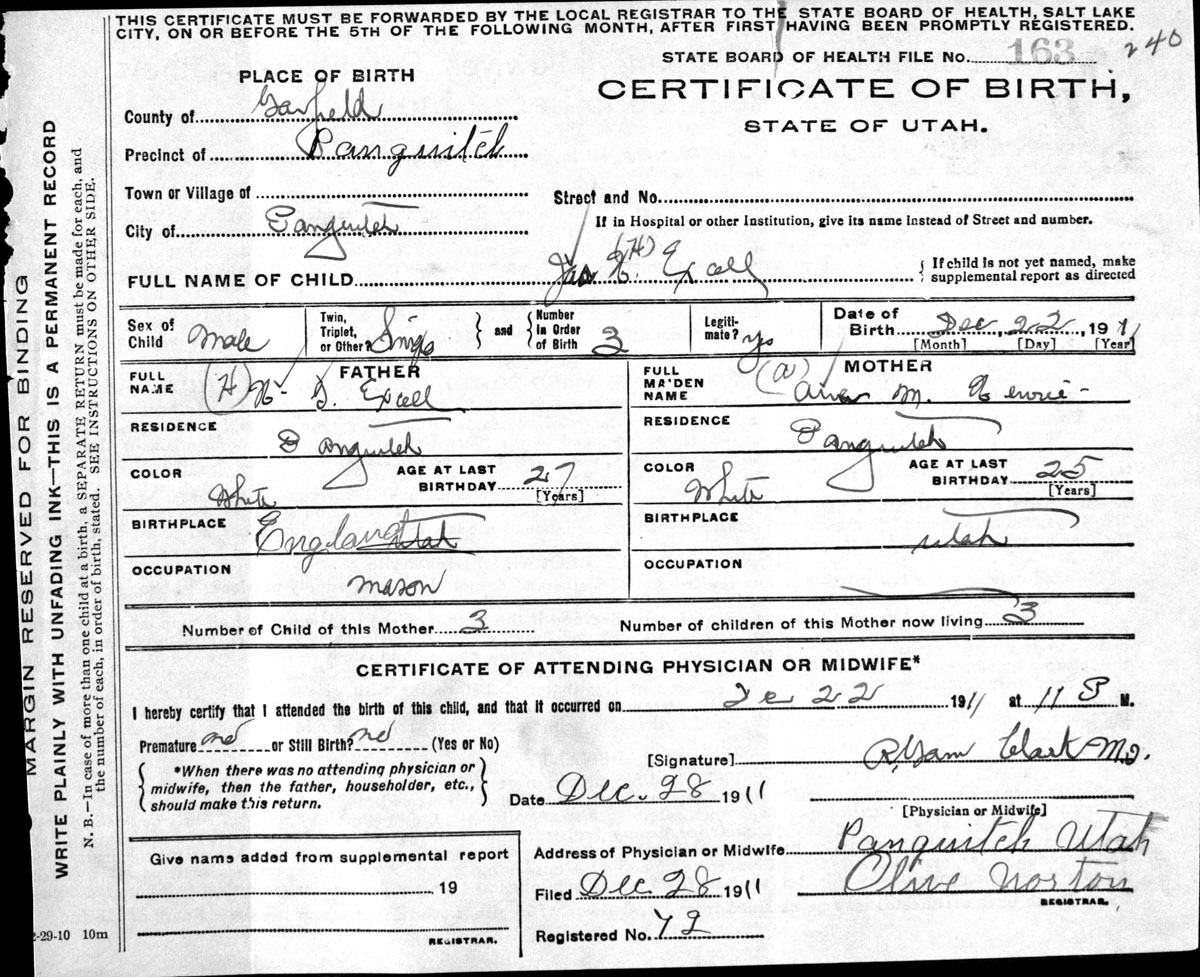 THIS CERTIFICATE MUST BE FORWARDED BY THE LOCAL REGISTRAR TO THE STATE BOARD OF HEALTH, SALT LAKE
CITY, ON OR BEFORE THE 5TH OF THE FOLLOWING MONTH, AFTER FIRST HAVING BEEN PROMPTLY REGISTERED.
STATE BOARD OF HEALTH FILE No. 163 240
PLACE OF BIRTH
CERTIFICATE OF BIRTH,
STATE OF UTAH.
County of Garfield
Precinct of Panguitch
Town or Village of
Street and No.
If in Hospital or other Institution, give its name instead of Street and number.
City of Panguitch
FULL NAME OF CHILD Jas (H) Excell
{ If child is not yet named, make
supplemental report as directed
Sex of Child Male
Twin, Triplet, or Other? Single
and
Number in Order of Birth 3
Legiti-mate? yes
Date of Birth Dec 22, 1911
[Month] [Day] [Year]
FATHER
FULL NAME (H) Excell
RESIDENCE Panguitch
COLOR White
AGE AT LAST BIRTHDAY 27
[Years]
BIRTHPLACE England Utah
OCCUPATION Mason
MOTHER
FULL MAIDEN NAME (a) M.
RESIDENCE Panguitch
COLOR White
AGE AT LAST BIRTHDAY 25
[Years]
BIRTHPLACE Utah
OCCUPATION
Number of Child of this Mother 3
Number of children of this Mother now living 3
CERTIFICATE OF ATTENDING PHYSICIAN OR MIDWIFE*
I hereby certify that I attended the birth of this child, and that it occurred on De 22 1911 at 11 P M.
Premature no or Still Birth? no (Yes or No)
*When there was no attending physician or
midwife, then the father, householder, etc.,
should make this return.
[Signature] Clark M.D.
Date Dec. 28 1911
[Physician or Midwife]
Address of Physician or Midwife Panguitch Utah
Filed Dec. 28 1911
Olive Norton
REGISTRAR.
Registered No. 72
Give name added from supplemental report
, 19
REGISTRAR.
2-29-10 10m
MARGIN RESERVED FOR BINDING
WRITE PLAINLY WITH UNFADING INK—THIS IS A PERMANENT RECORD
N. B.—In case of more than one child at a birth, a SEPARATE RETURN must be made for each, and
the number of each, in order of birth, stated. SEE INSTRUCTIONS ON OTHER SIDE.